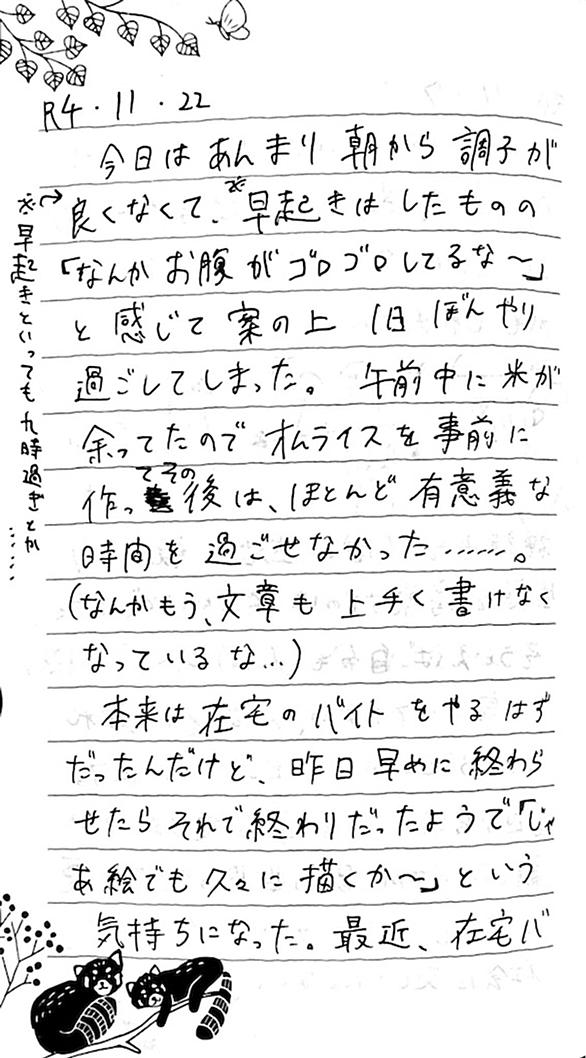 R4・11・22
今日はあんまり朝から調子が
良くなくて、※早起きはしたものの
「なんかお腹がゴロゴロしてるな〜」
と感じて案の上 1日ぼんやり
過ごしてしまった。 午前中に米が
余ってたのでオムライスを事前に
作ってその後は、ほとんど有意義な
時間を過ごせなかった……。
(なんかもう、文章も上手く書けなく
なっているな…)
本来は在宅のバイトをやるはず
だったんだけど、昨日早めに終わら
せたらそれで終わりだったようで「じゃ
あ絵でも久々に描くか〜」という
気持ちになった。最近、在宅バ
※早起きといっても九時過ぎとか……